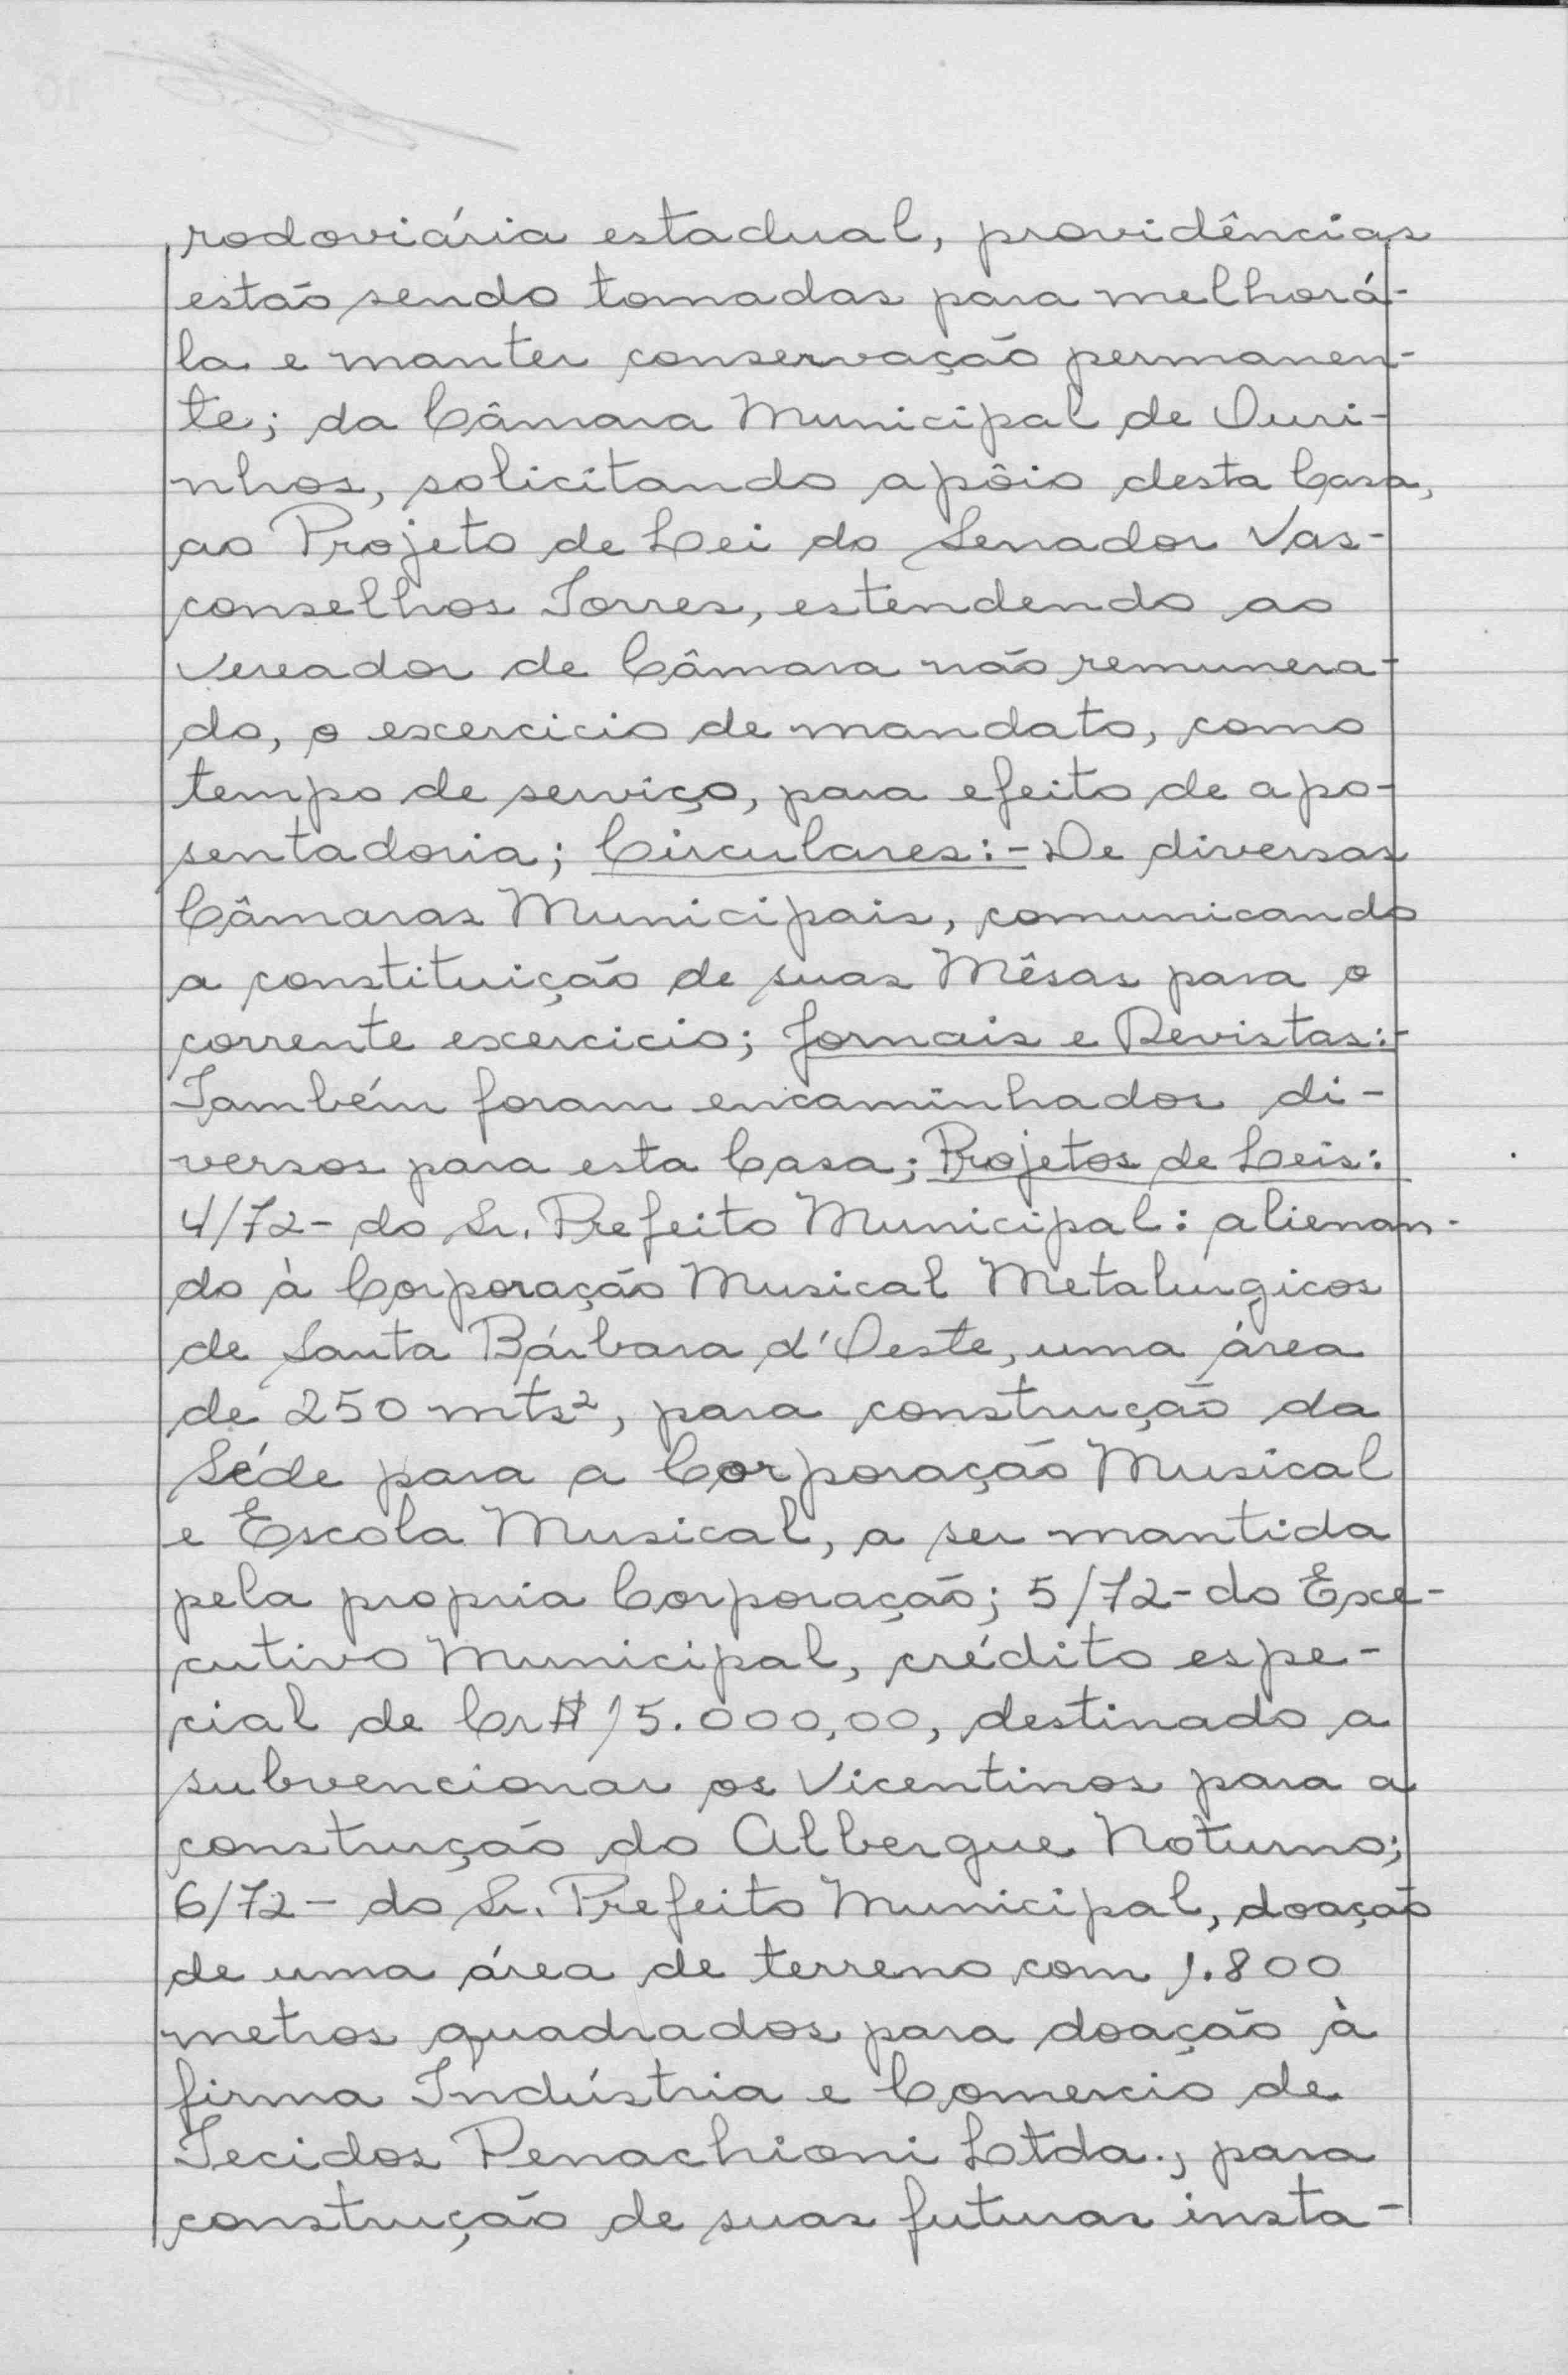 rodoviária estadual, providências
estão sendo tomadas para melhorá-
la e manter conservação permanen-
te; da Câmara Municipal de Ouri-
nhos, solicitando apôio desta Casa,
ao Projeto de Lei do Senador Vas-
conselhos Torres, estendendo ao
Vereador de Câmara não remunera-
do, o exercicio de mandato, como
tempo de serviço, para efeito de apo-
sentadoria; Circulares:- De diversas
Câmaras Municipais, comunicando
a constituição de suas Mêsas para o
corrente exercicio; Jornais e Revistas:-
Também foram encaminhados di-
versos para esta Casa; Projetos de Leis:
4/72- do Sr. Prefeito Municipal: alienan-
do à Corporação Musical Metalurgicos
de Santa Bárbara d'Oeste, uma área
de 250 mts², para construção da
Séde para a Corporação Musical
e Escola Musical, a ser mantida
pela propria Corporação; 5/72- do Exe-
cutivo Municipal, crédito espe-
cial de Cr$ 15.000,00, destinado a
subvencionar os Vicentinos para a
construção do Albergue Noturno;
6/72- do Sr. Prefeito Municipal, doação
de uma área de terreno com 1.800
metros quadrados para doação à
firma Indústria e Comercio de
Tecidos Penachioni Ltda., para
construção de suas futuras insta-